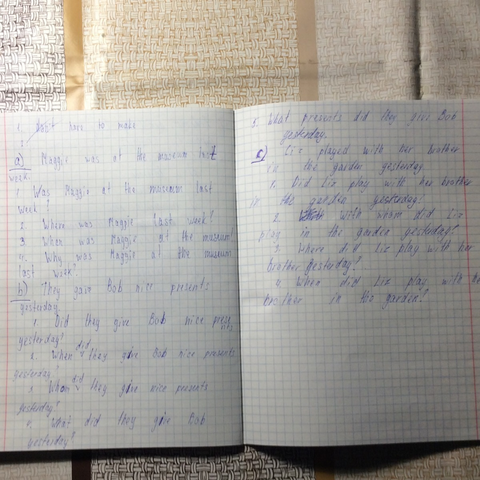 1. don't have to make
2.
a) Maggie was at the museum last
week.
1. Was Maggie at the museum last
week?
2. Where was Maggie last week?
3. When was Maggie at the museum?
4. Why was Maggie at the museum
last week?
b) They gave Bob nice presents
yesterday.
1. Did they give Bob nice presents
yesterday?
2. When did they give Bob nice presents
yesterday?
3. Whom did they give nice presents
yesterday?
4. What did they give Bob
yesterday?
5. What presents did they give Bob
yesterday.
c) Liz played with her brother
in the garden yesterday.
1. Did Liz play with her brother
in the garden yesterday?
2. with whom did Liz
play in the garden yesterday?
3. Where did Liz play with her
brother yesterday?
4. When did Liz play with her
brother in the garden?